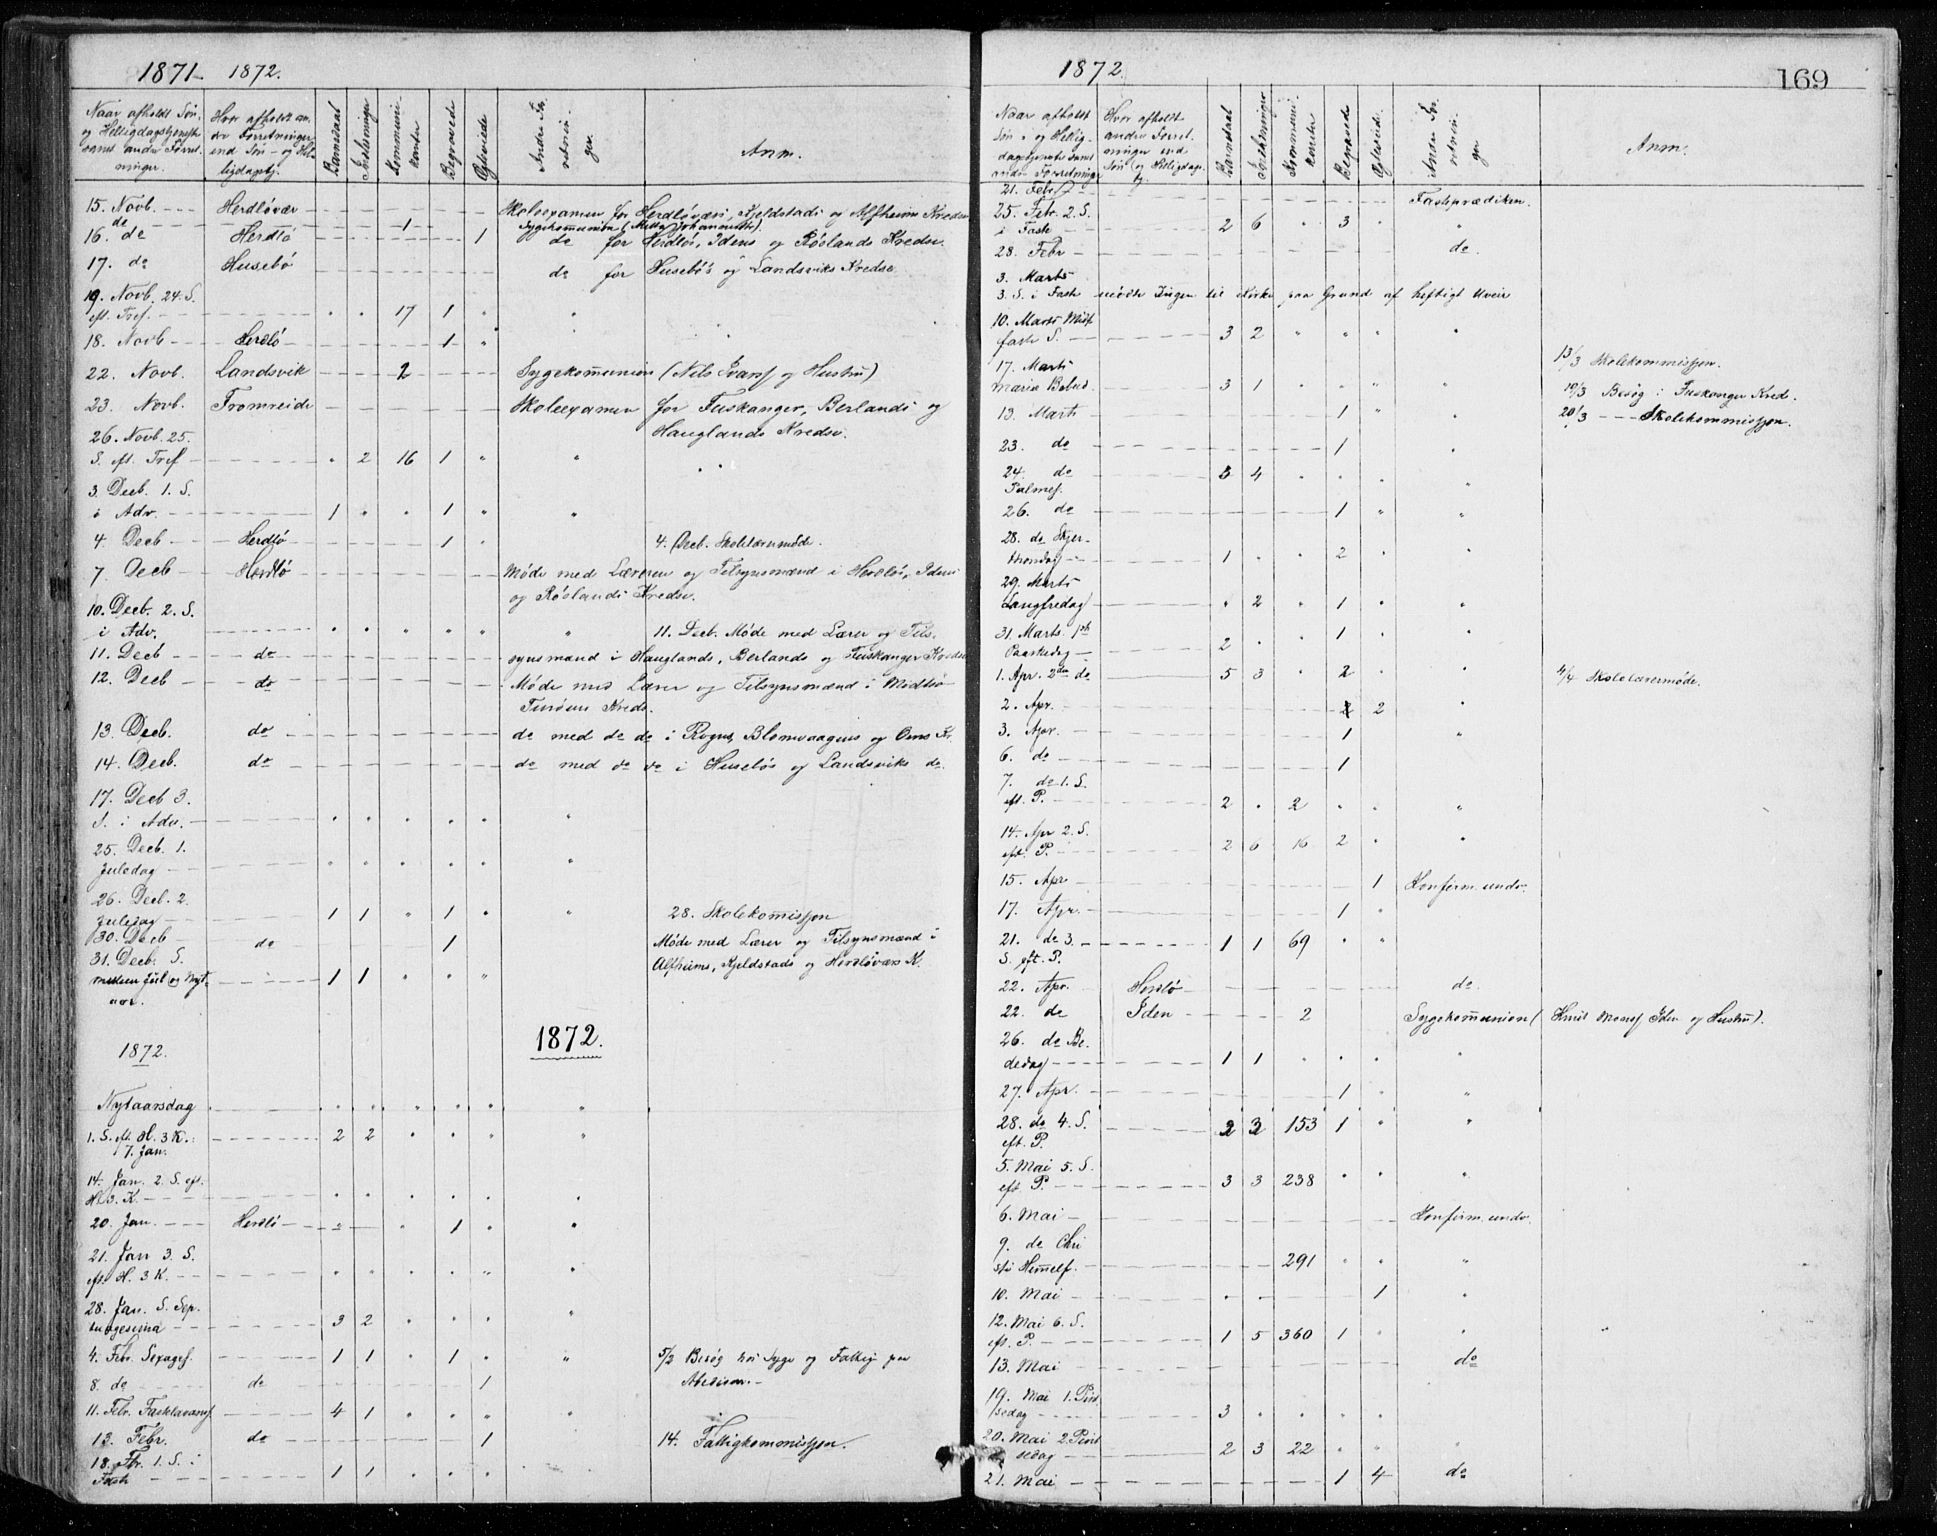 1871 1872.
Naar afholdt Søn- og Helligdagstjeneste samt andre Forretninger. | Hvor afholdt andre Forretninger end Søn- og Helligdagstj. | Barnedaab | Introduktion | Kommunikanter | Begravede | Egteviede | Andre Forretninger | Anm.
15. Novb. Herdløvær Skoleexamen for Herdløværs, Kjeldstads og Alfheims Kredse
do 1 Sygekommunion
16. do Herdlø 1 do for Herdløs, Idens og Røslands Kredse.
17. do Husebø do for Husebøs og Landsviks Kredse
19. Novb. 24. S.
eft. Tref. " " 17 1 " "
18. Novb Herdlø 1 "
22. Novb. Landsvik 2 Sygekommunion (Nils Ivars. og Hustru)
23. Novb. Fromreide Skoleexamen for Fuskanger, Berlands og
Hauglands Kredse.
26. Novb. 25.
S. eft. Tref " 2 16 1 " "
3. Decb. 1. S.
i Adv. 1 " " 1 " "
4. Decb Herdlø 1 " 4. Decb. Skolelærermøde.
7. Decb Herdlø Møde med Læreren og Tilsynsmænd i Herdløs, Idens
og Røslands Kredse.
10. Decb. 2. S.
i Adv. " " " " " " 11. Decb. Møde med Lærer og Til-
11. Decb do synsmænd i Hauglands, Berlands og Fuskanger Kredse
12. Decb do Møde med Lærer og Tilsynsmænd i Midtre
Kreds.
13. Decb. do do med do do i Rognes, Blomvaagens og Oens Kr.
14. Decb. do do med do do i Husebøs og Landsviks do.
17. Decb 3.
S. i Adv. " " " " " "
25. Decb. 1.
Juledag " " " " " "
26. Decb. 2.
Juledag 1 1 " 1 " " 28. Skolekomission
30. Decb do 1 Møde med Lærer og Tilsynsmænd i
31. Decb. S. Alfheims, Kjeldstads og Herdløværs K.
mellem Jul og Nyt- 1 1 " " "
aar.
1872.
1872.
Nytaarsdag " " " " " "
1. S. eft. H. 3 K. 2 2 " " " "
7. Jan.
14. Jan. 2. S. eft.
H. 3. K. " " " " " "
20. Jan. Herdlø " 1 " "
21. Jan 3. S.
eft. H. 3 K. " " " " " "
28. Jan. S. Sep-
tuagesima 3 2 " " " "
4. Febr. Sexages. 1 1 " 1 " " 5/2 Besøg hos Syge og Fattig paa
8. do do 1
11. Febr. Fastelavens 4 1 " " " "
13. Febr. do 1 14. Fattigkommission.
18. Fbr. 1. S. i
Faste 1 1 " " "
1872. 169
Naar afholdt Søn- og Helligdagstjeneste samt andre Forretninger | Hvor afholdt andre Forretninger end Søn- og Helligdagstj. | Barnedaab | Introduktioner | Kommunikanter | Begravede | Egteviede | Andre Forretninger | Anm.
21. Febr. Fasteprædiken.
25. Febr. 2. S.
i Faste 2 6 " 3 " "
28. Febr do.
3. Marts
3. S. i Faste mødte Ingen til Kirke paa Grund af heftigt Uveir
10. Marts Midf-
faste S. 3 2 " " " "
17. Marts 13/3 Skolekommission.
Mariæ Bebud. 3 1 " " " " 19/3 Besøg i Fuskanger Kred.
13. Marts 1 " " 20/3 Skolekommission.
23. do 1 "
24. do 3 4 " " " "
Palmes.
26. do 1 " "
28. do Skjær-
thorsdag 1 " " 2 " "
29. Marts
Langfredag " 2 " 1 " "
31. Marts. 1ste
Paaskedag 2 " " 1 " "
1. Apr. 2den do 5 3 " 2 " " 4/4 Skolelærermøde.
2. Apr. 2 "
3. Apr. 1 "
6. do 1
7. do 1. S.
eft. P. 2 " 2 " " "
14. Apr 2. S.
eft. P. 2 6 16 2 " "
15. Apr 1 Konfirm. underv.
17. Apr. 1 "
21. do 3. 1 1 69 " "
S. eft. P.
22. Apr. Herdlø do.
22. do Iden 2 Sygekommunion (Knut Mons. Iden og Hustru).
26. do Be-
dedag 1 1 " " " "
27. Apr. 1 " "
28. do 4. S. 2 3 153 1 " "
eft. P.
5. Mai 5. S.
eft. P. 3 3 238 " " "
6. Mai Konfirm. underv.
9. do Chri
sti Himmelf. 291 " " "
10. Mai 1 "
12. Mai 6. S.
eft. P. 1 5 360 1 " "
13. Mai do
19. Mai 1. Pint-
sedag 3 " " " "
20. Mai 2. Pint
sedag 2 3 22 " " "
21. Mai 1 4 do